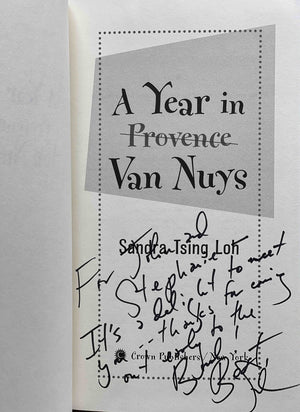 A Year in
Provence
Van Nuys
Sandra Tsing Loh
For John and
Stephanie
It's a delight to meet
you -- thanks for coming
out to the
Crown Publishers / New York